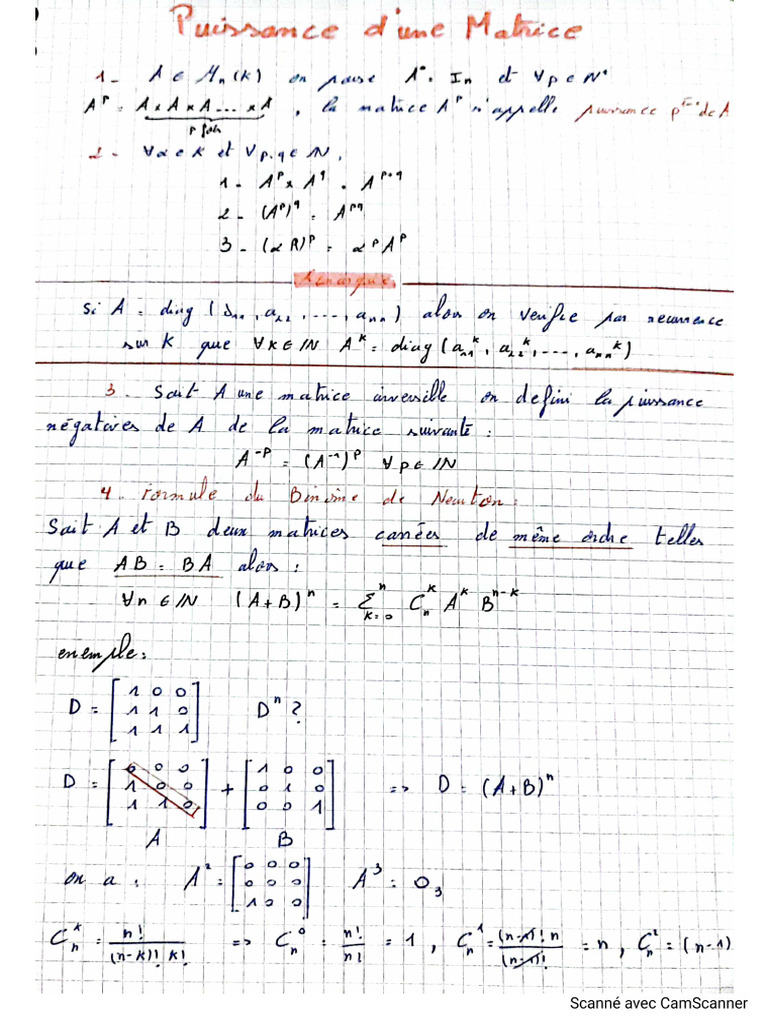 Puissance d'une Matrice
1- A ∈ Mn(K) on pose A° = In et ∀p∈N*
A^p = A x A x A ... x A, la matrice A^p s'appelle puissance p^ième de A
p fois
2- ∀α∈K et ∀p,q∈IN,
1- A^p x A^q = A^p+q
2- (A^p)^q = A^pq
3- (αA)^p = α^p A^p
Remarque
si A = diag (a11, a22, ..., ann) alors on verifie par recurrence
sur K que ∀K∈IN A^k = diag (a11^k, a22^k, ..., ann^k)
3. Soit A une matrice inversible on defini la puissance
négatives de A de la matrice suivante :
A^-p = (A^-1)^p ∀p∈IN
4. Formule du Binôme de Newton :
Soit A et B deux matrices carrées de même ordre telles
que AB = BA alors :
∀n∈IN (A+B)^n = Σ_{k=0}^{n} C_n^k A^k B^{n-k}
exemple :
D = [1 0 0; 1 1 0; 1 1 1] D^n ?
D = [0 0 0; 1 0 0; 1 1 0] + [1 0 0; 0 1 0; 0 0 1] => D = (A+B)^n
A B
on a : A² = [0 0 0; 0 0 0; 1 0 0] A³ = O₃
C_n^k = n!/((n-k)! k!) => C_n^0 = n!/n! = 1, C_n^1 = (n-1)! n/(n-1)! = n, C_n^2 = (n-1)
Scanné avec CamScanner